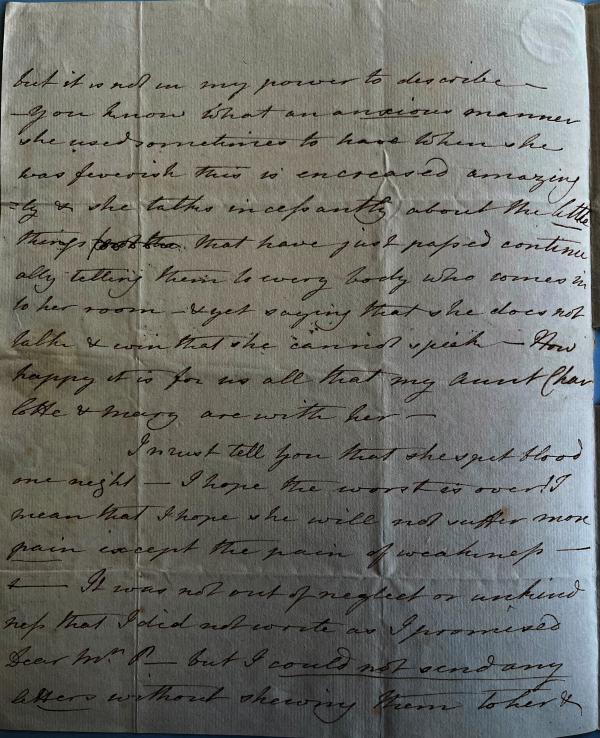 but it is not in my power to describe –
– you know what an anxious manner
she used sometimes to have when she
was feverish this is encreased amazing
=ly & she talks incessantly about the little
things that have just passed continu
ally telling them to every body who comes in
to her room – & yet saying that she does not
talk & even that she cannot speak – How
happy it is for us all that my Aunt Char
lotte & Mary are with her –
I must tell you that she spit blood
one night – I hope the worst is over! I
mean that I hope she will not suffer more
pain except the pain of weakness –
+ — It was not out of neglect or unkind
ness that I did not write as I promised
Dear Mrs P – but I could not send any
letters without shewing them to her &